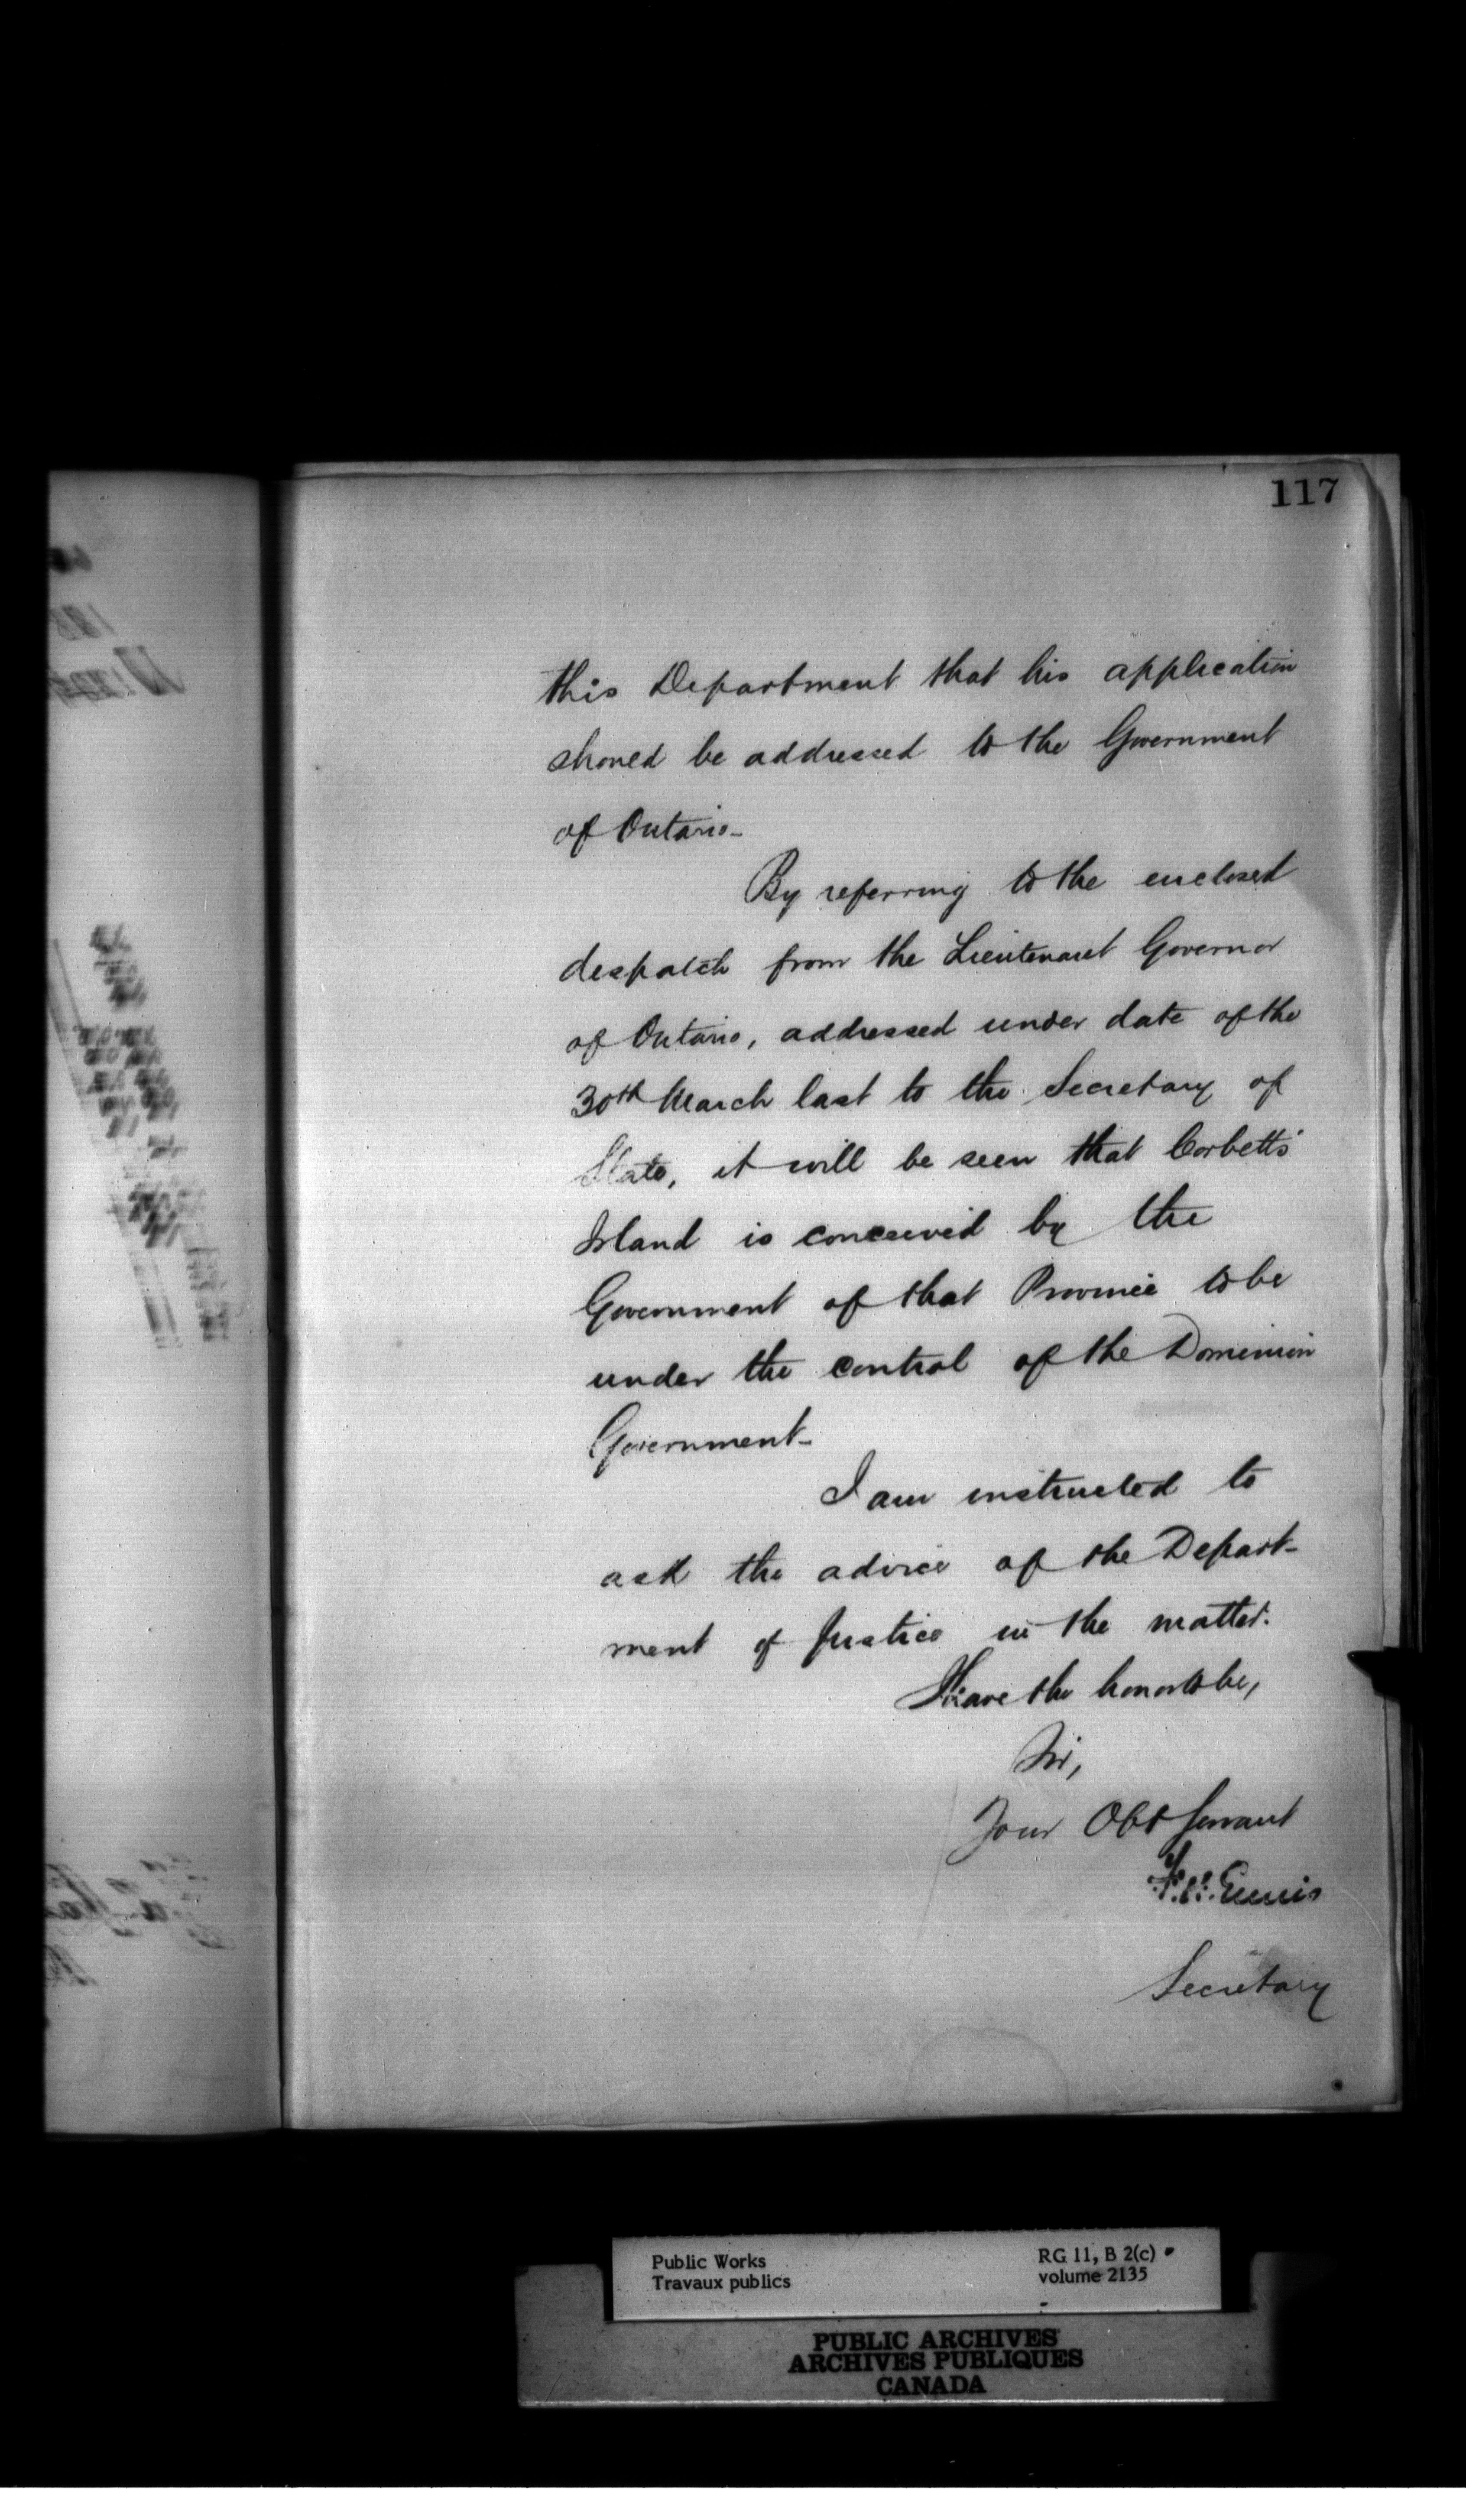 117
this Department that his application
should be addressed to the Government
of Ontario-
By referring to the enclosed
despatch from the Lieutenant Governor
of Ontario, addressed under date of the
30th March last to the Secretary of
State, it will be seen that Corbett's
Island is conceived by the
Government of that Province to be
under the control of the Dominion
Government-
I am instructed to
ask the advice of the Depart-
ment of Justice in the matter.
I have the honor to be,
Sir,
Your Obt Servant
Ennis
Secretary
Public Works
Travaux publics
RG 11, B 2(c)
volume 2135
PUBLIC ARCHIVES
ARCHIVES PUBLIQUES
CANADA